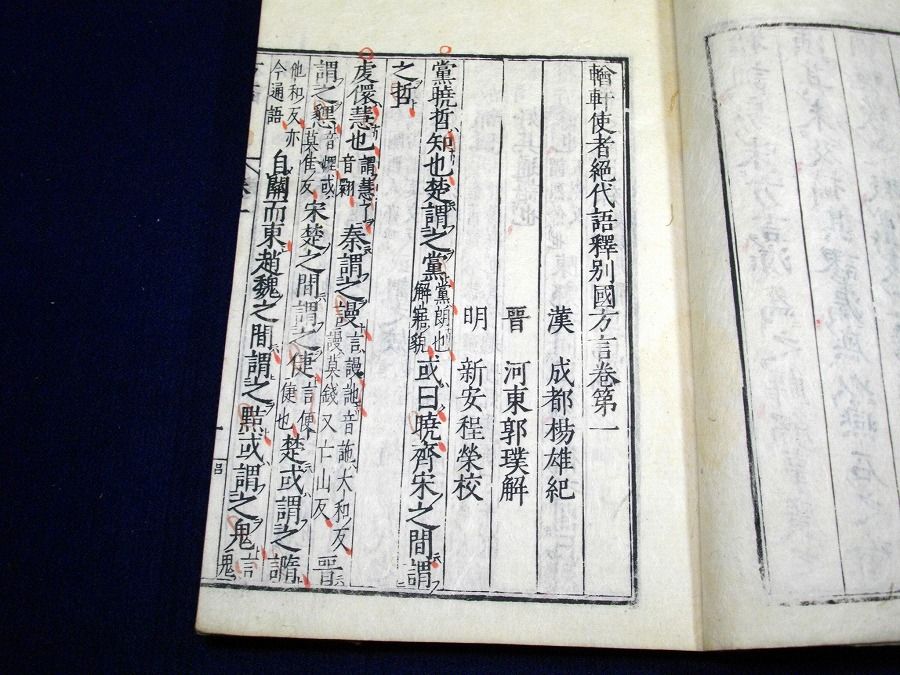 輶軒使者絕代語釋別國方言卷第一
漢　成都楊雄紀
晉　河東郭璞解
明　新安程榮校
黨曉哲知也楚謂之黨黨朗也解寤貌或曰曉齊宋之間謂
之哲
虔儇慧也謂慧了音翾秦謂之謾言謾訑音訑大和反謾莫錢又亡山反晉
謂之𢠢音悝或莫隹反宋楚之間謂之倢言便倢也楚或謂之䜏
他和反亦今通語自關而東趙魏之間謂之黠或謂之鬼言鬼